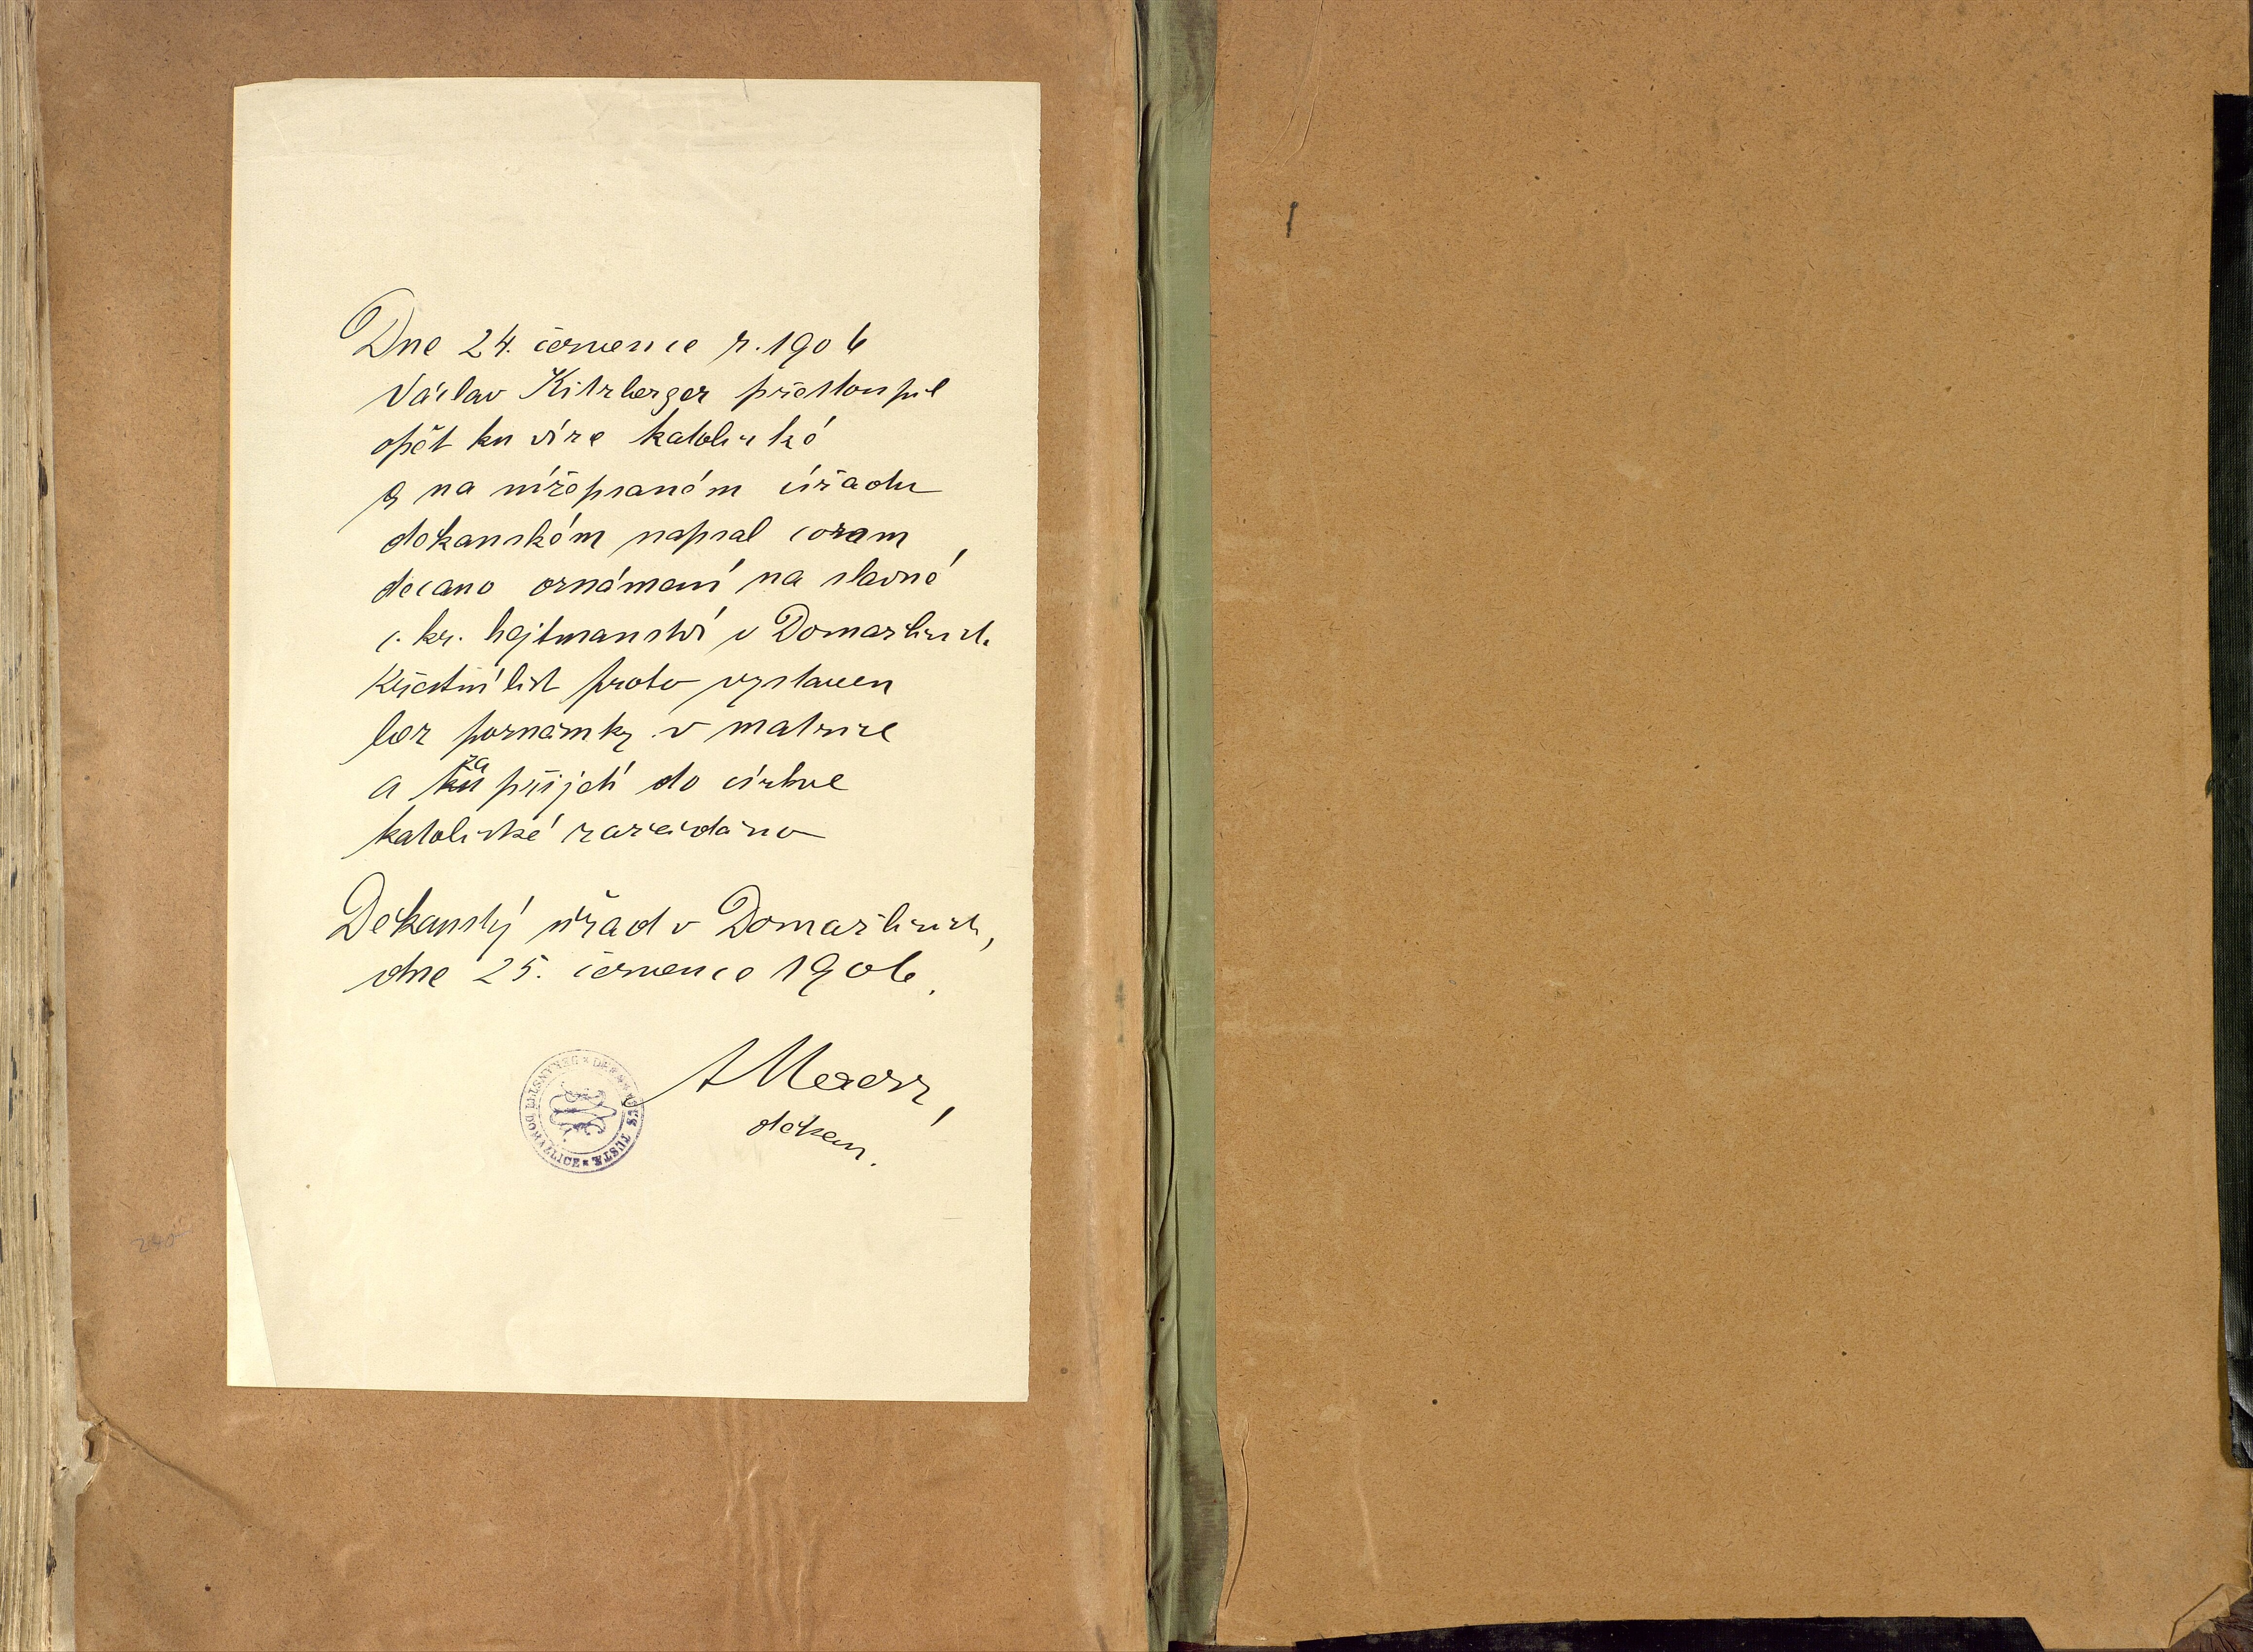 Dne 24. července r. 1906
Václav Kitzberger přistoupil
opět ku víře katolické
a na nížepsaném úřadu
děkanském napsal coram
decano oznámení na slavné
c. kr. hejtmanství v Domažlicích.
Křestní list proto vystaven
bez poznámky v matrice
a ku za přijetí do církve
katolické zažádáno
Děkanský úřad v Domažlicích,
dne 25. července 1906.
děkan.
DOMAŽLICE